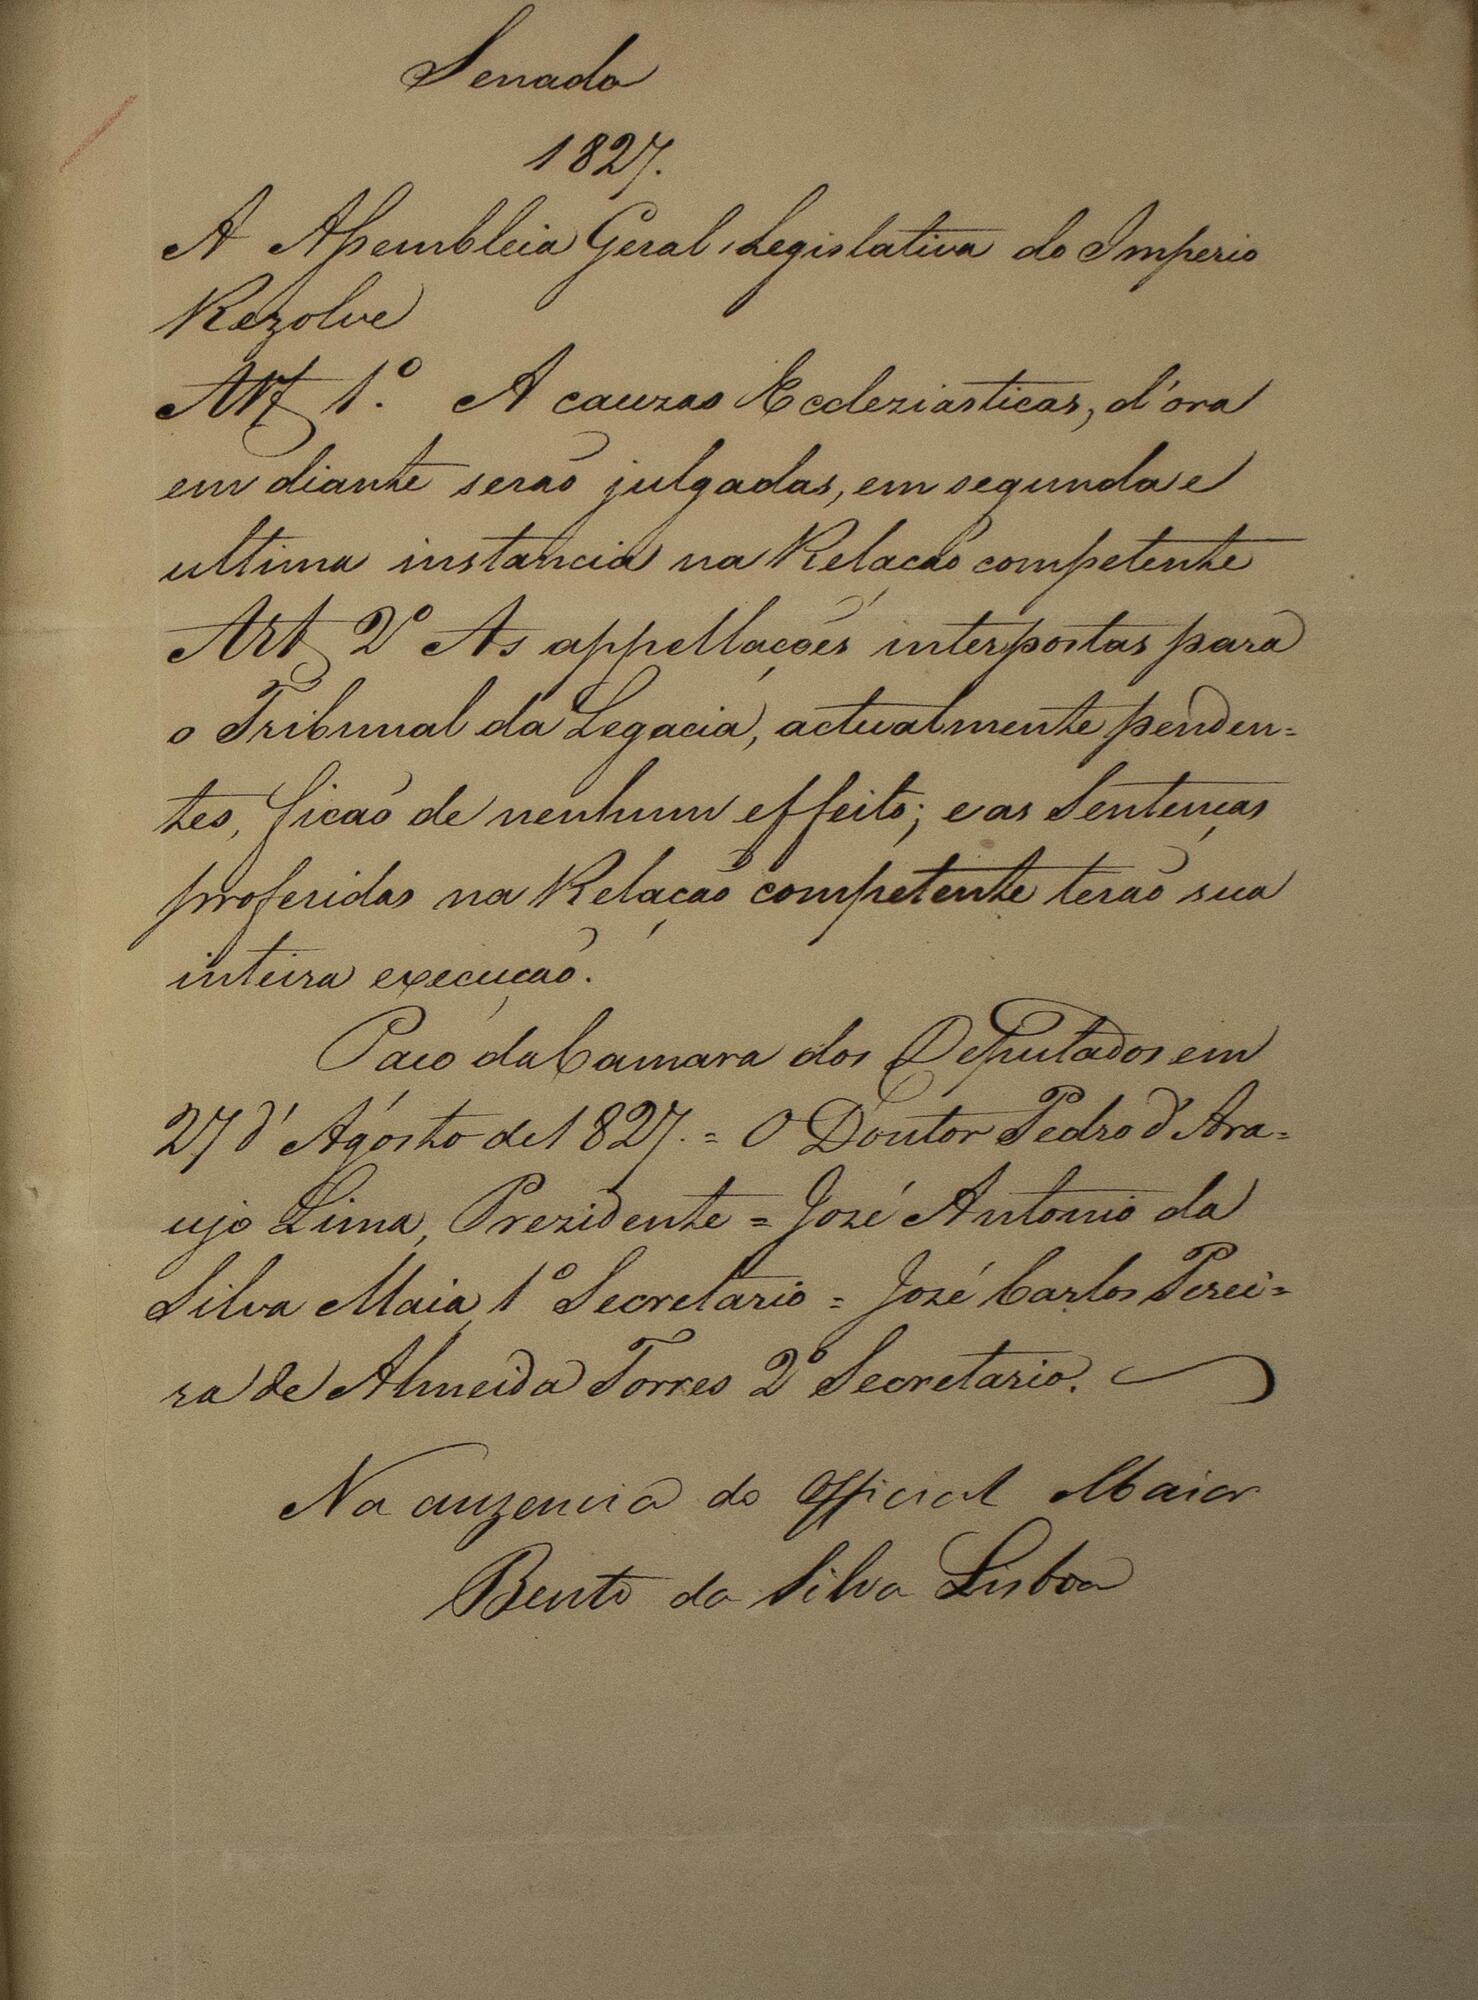 Senado
1827.
A Assembleia Geral Legislativa do Imperio
Rezolve
Art 1º. A cauzas Eccleziasticas, d'ora
em diante serão julgadas, em segunda e
ultima instancia na Relação competente
Art 2º As appellações interpostas para
o Tribunal da Legacia, actualmente penden=
tes, ficão de nenhum effeito; e as Sentenças
proferidas na Relação competente terão sua
inteira execução.
Paço da Camara dos Deputados em
27 d'Agosto de 1827. = O Doutor Pedro d'Ara=
ujo Lima, Prezidente = José Antonio da
Silva Maia, 1º Secretario = José Carlos Perei=
ra de Almeida Torres 2º Secretario.
Na auzencia do Official Maior
Bento da Silva Lisboa